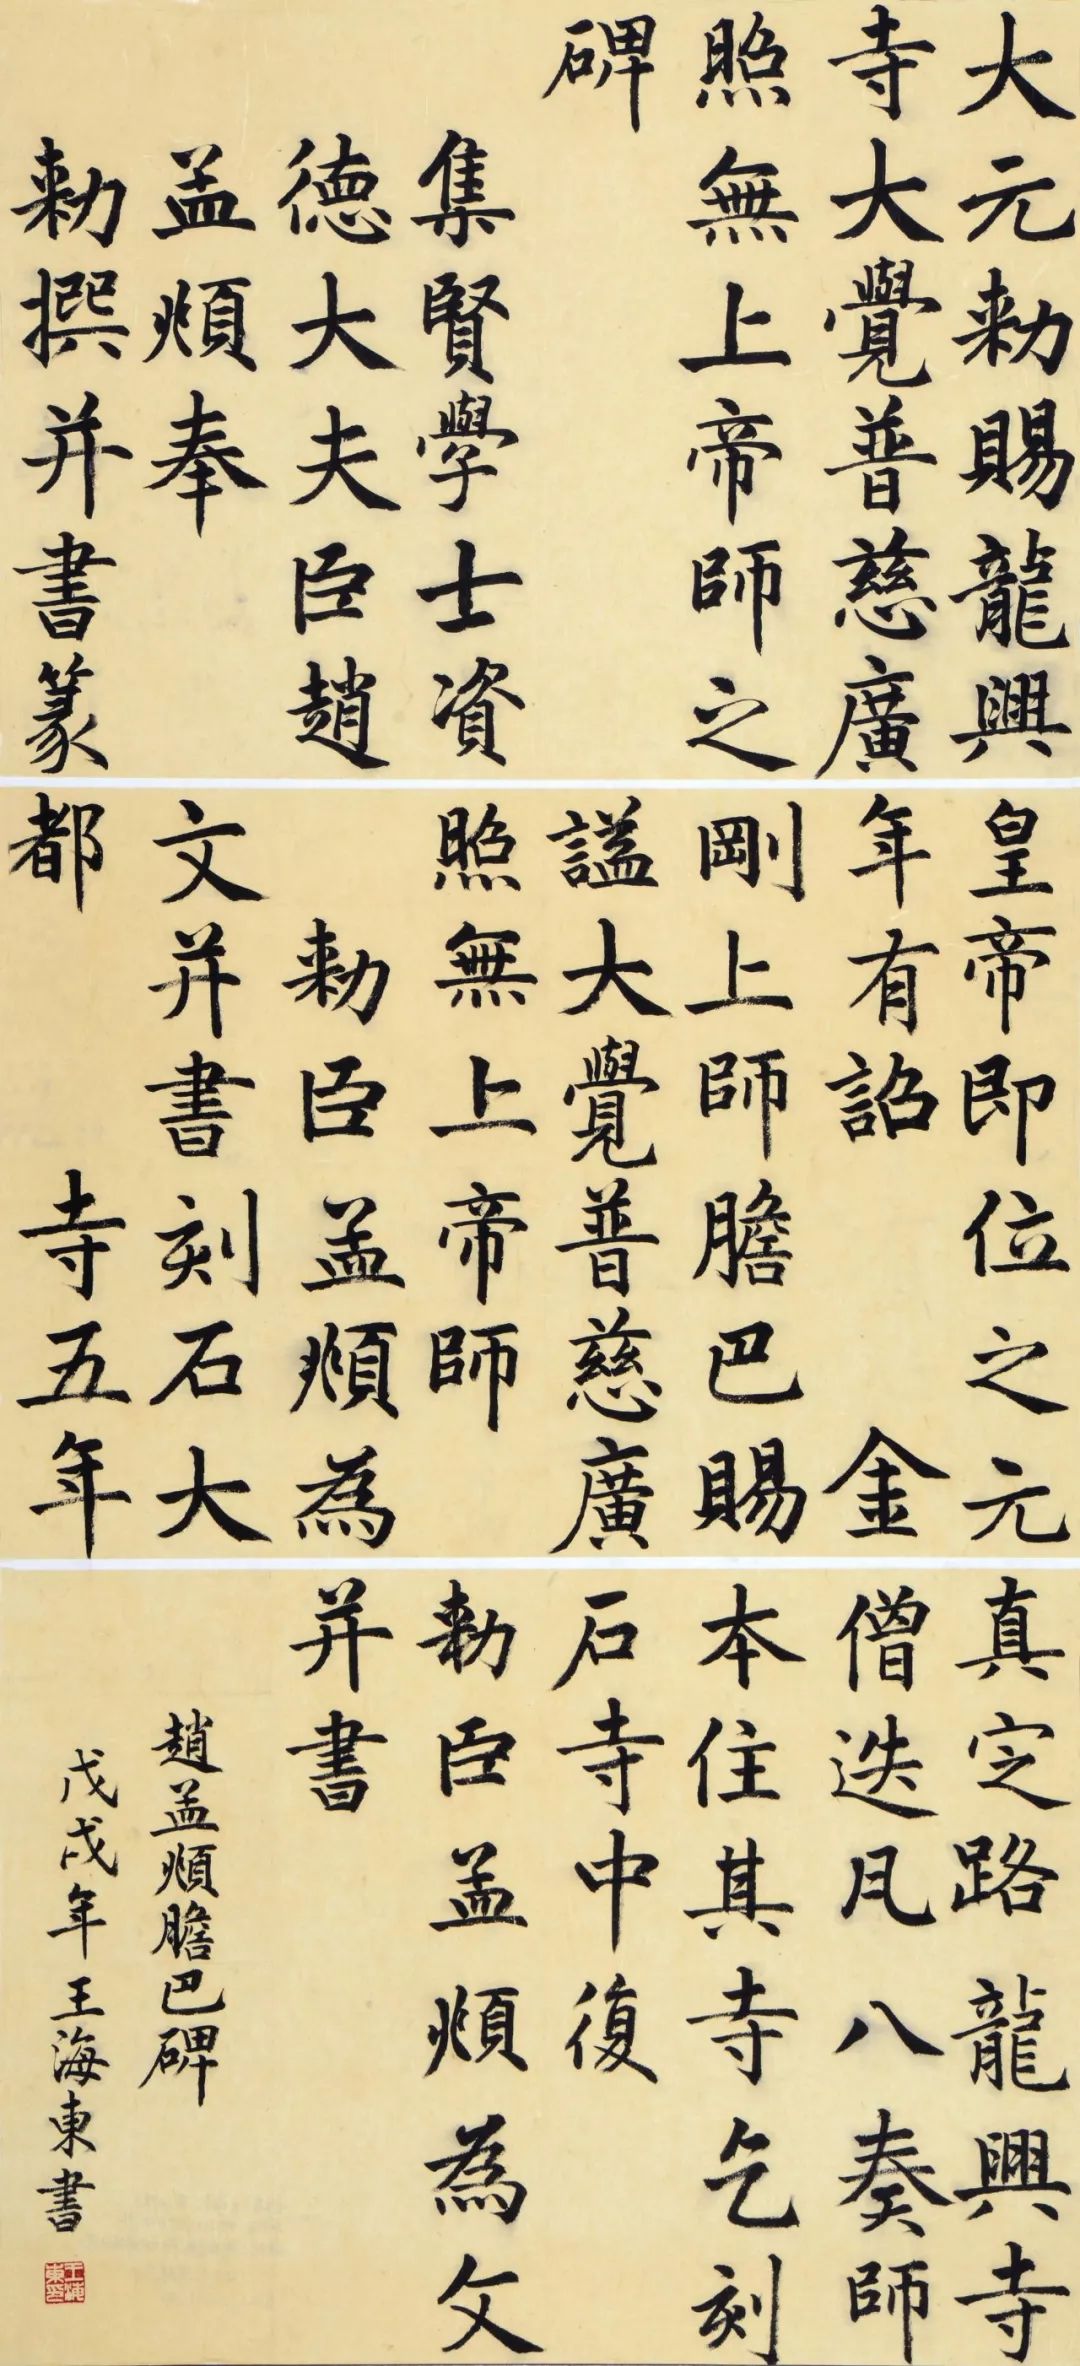 大元勑賜龍興
寺大覺普慈廣
照無上帝師之
碑
集賢學士資
德大夫臣趙
孟頫奉
勑撰并書篆
皇帝即位之元
年有詔 金
剛上師膽巴賜
謚大覺普慈廣
照無上帝師
勑臣孟頫為
文并書刻石大
都 寺五年
真定路龍興寺
僧迭凡八奏師
本住其寺乞刻
石寺中復
勑臣孟頫為文
并書
趙孟頫膽巴碑
戊戌年王海東書
王海東印